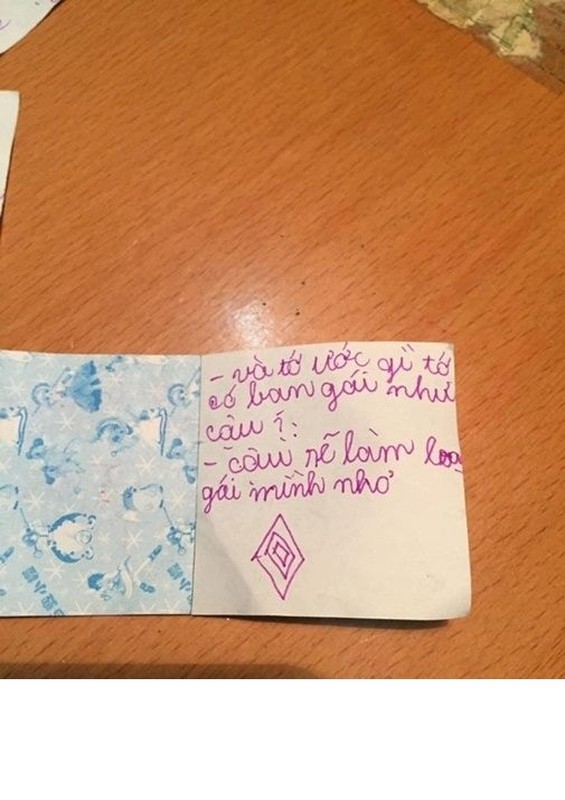 - và tớ ước gì tớ
có bạn gái như
cậu !:
- cậu sẽ làm bạn
gái mình nhớ